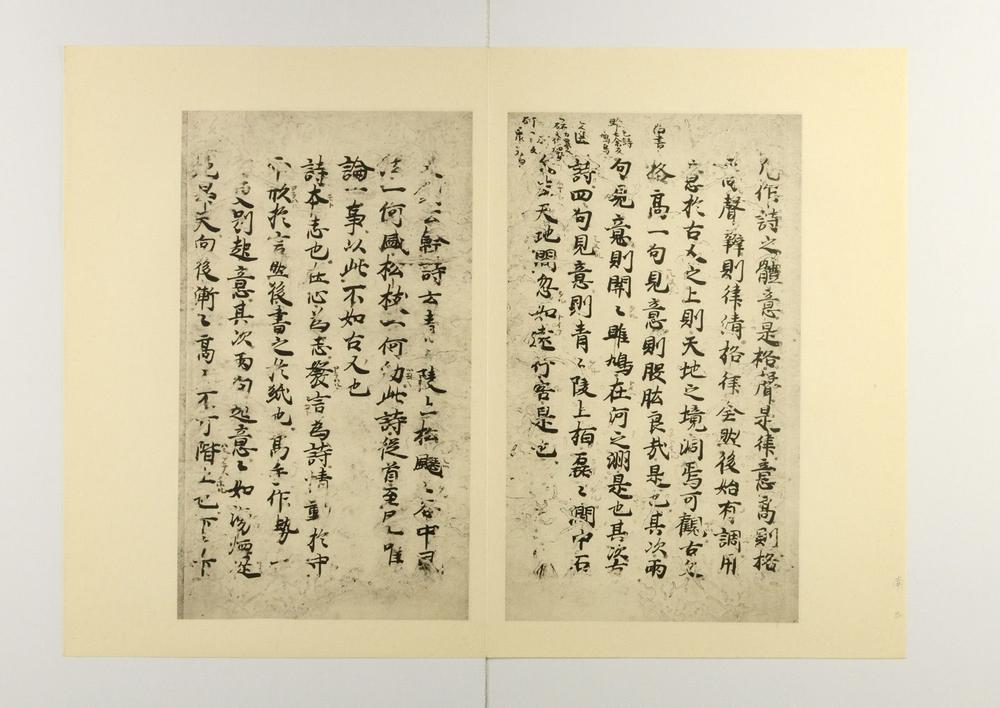 凡作詩之體意是格聲是律意高則格
高聲辨則律清格律全然後始有調用
意於古人之上則天地之境洞焉可觀古文
格高一句見意則股肱良哉是也其次兩
句見意則關〻雎鳩在河之洲是也其次古
詩四句見意則青〻陵上栢磊〻澗中石
人生天地間忽如遠行客是也
又劉公幹詩云青〻陵上松飋〻谷中風
一何盛松枝一何勁此詩從首至尾唯
論一事以此不如古人也
詩本志也在心為志發言為詩情動於中
而形於言然後書之於紙也高手作勢一
句更別起意其次兩句起意〻如涌烟從
地昇天向後漸〻高〻不可階上也下手下